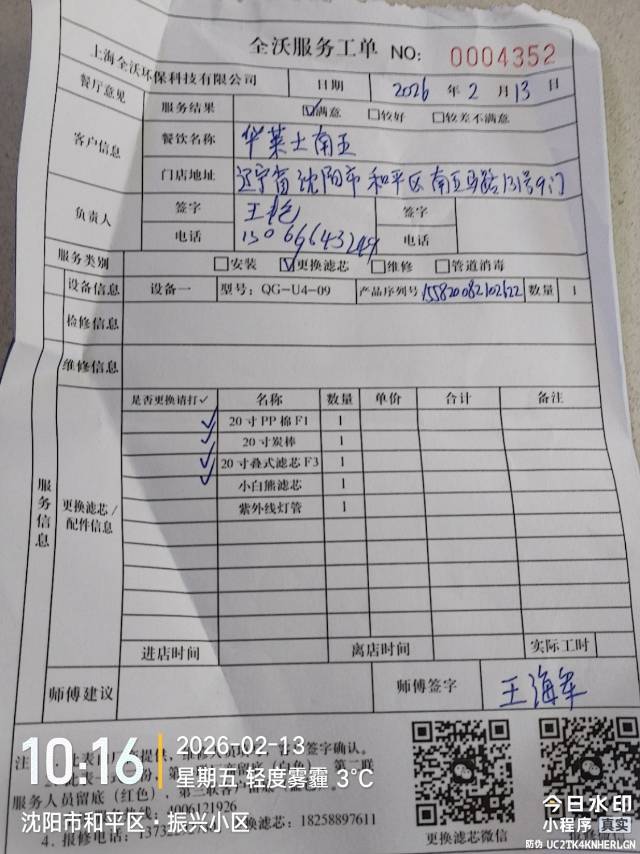 全沃服务工单 NO: 0004352
上海全沃环保科技有限公司 日期 2026 年 2 月 13 日
餐厅意见 服务结果 ☑满意 □较好 □较差不满意
客户信息 餐饮名称 华莱士南五
门店地址 辽宁省沈阳市和平区南五马路131号9门
负责人 签字 王艳 签字
电话 电话
服务类别 □安装 ☑更换滤芯 □维修 □管道消毒
设备信息 设备一 型号: QG-U4-09 产品序列号 155820082102622 数量 1
检修信息
维修信息
服务信息
更换滤芯/配件信息
是否更换请打✓ 名称 数量 单价 合计 备注
✓ 20寸PP棉F1 1
✓ 20寸炭棒 1
✓ 20寸叠式滤芯F3 1
✓ 小白熊滤芯 1
紫外线灯管 1
进店时间 离店时间 实际工时
师傅建议 师傅签字 王海军
签字确认。
服务人员留底(红色),
4006121926
4. 报修电话: 滤芯: 18258897611
更换滤芯微信
10:16
2026-02-13
星期五 轻度雾霾 3°C
沈阳市和平区·振兴小区
今日水印
小程序 真实
防伪 UC2TK4KNHERLGN